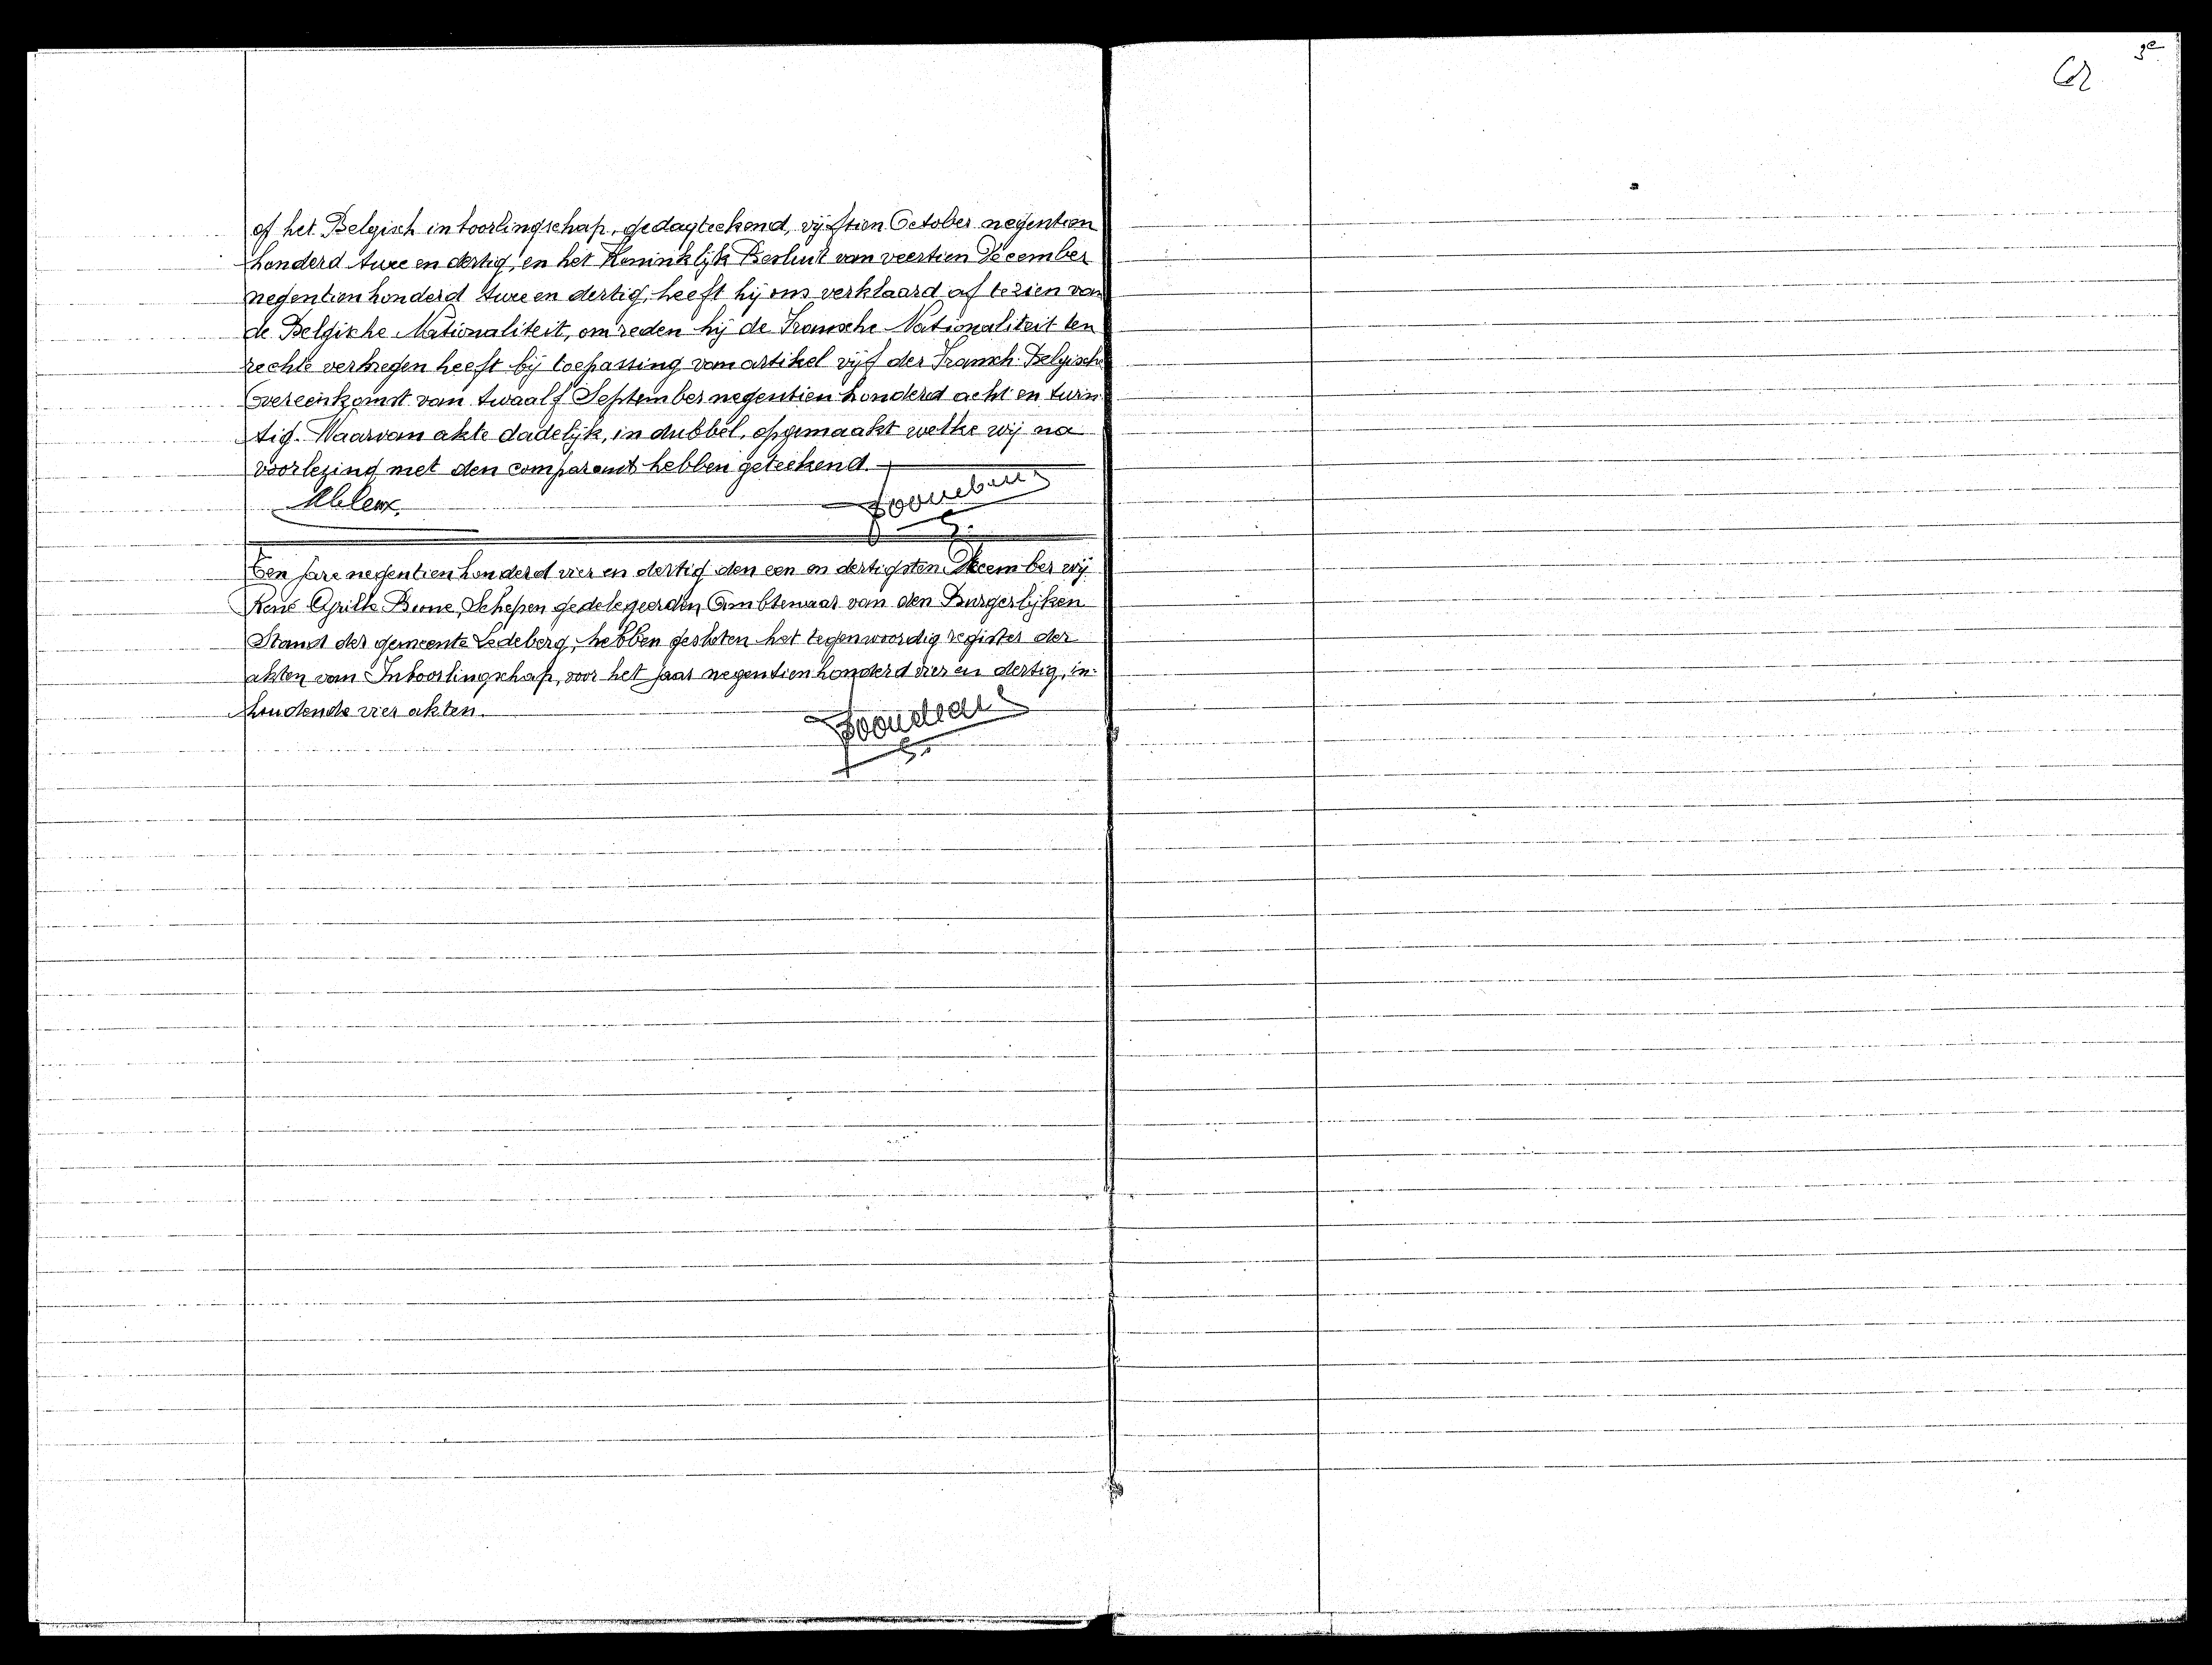 of het Belgisch inboorlingschap, gedagteekend, vijftien October negentien
honderd twee en dertig, en het Koninklijk Besluit van veertien December
negentienhonderd twee en dertig, heeft hij ons verklaard af te zien van
de Belgische Nationaliteit, om reden hij de Fransche Nationaliteit ten
rechte verkregen heeft bij toepassing van artikel vijf der Fransch-Belgische
Overeenkomst van twaalf September negentien honderd acht en twin
tig. Waarvan akte dadelijk, in dubbel, opgemaakt welke wij na
voorlezing met den comparant hebben geteekend.
Ten jare negentienhonderd vier en dertig den een en dertigsten December wij
René Schepen gedelegeerden Ambtenaar van den Burgerlijken
Stand der gemeente Ledeberg, hebben gesloten het tegenwoordig register der
akten van Inboorlingschap, voor het jaar negentienhonderd vier en dertig, in-
houdende vier akten.
3e